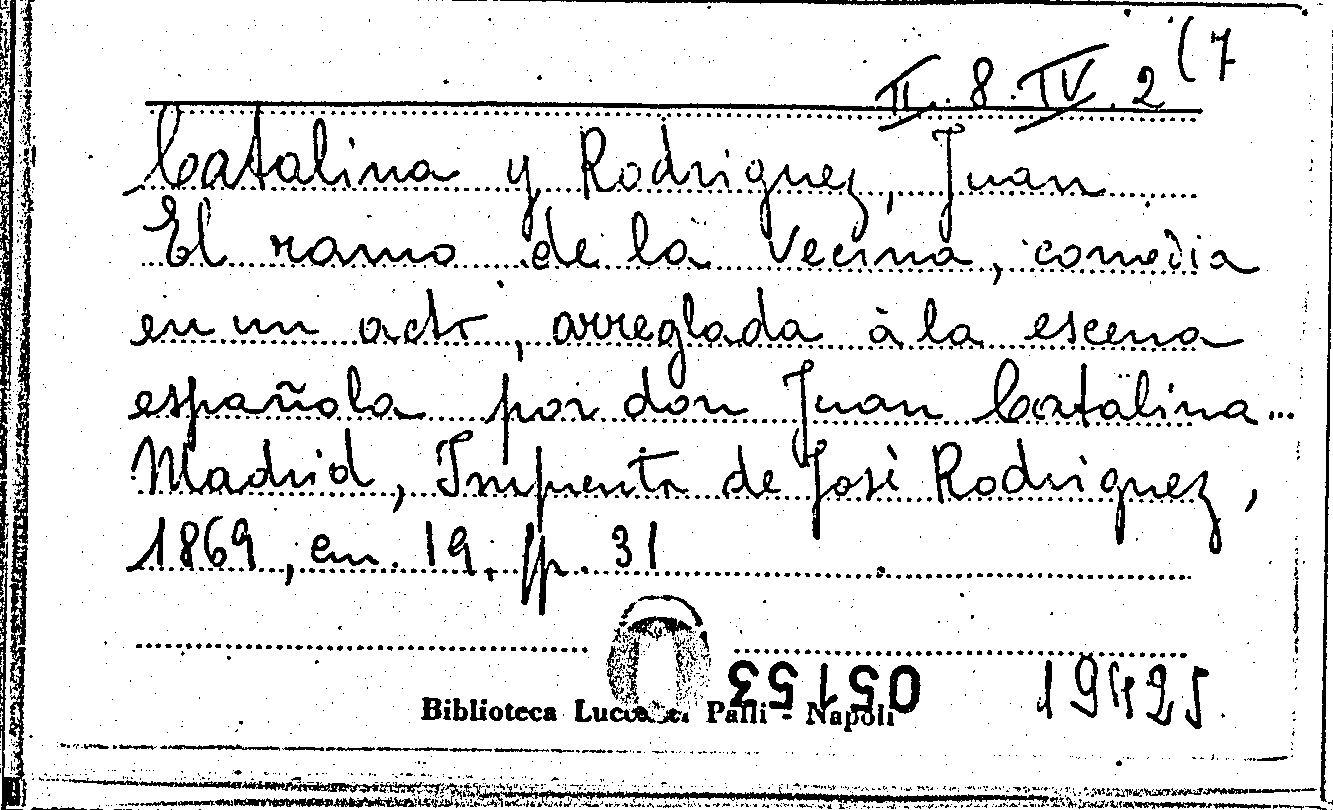 II. 8. IV. 2 (7
Catalina y Rodriguez, Juan
El ramo de la vecina, comedia
en un acto, arreglada à la escena
española por don Juan Catalina...
Madrid, Imprenta de Josè Rodriguez,
1869, cm. 19, pp. 31
05153
19425
Biblioteca Lucchesi Palli - Napoli